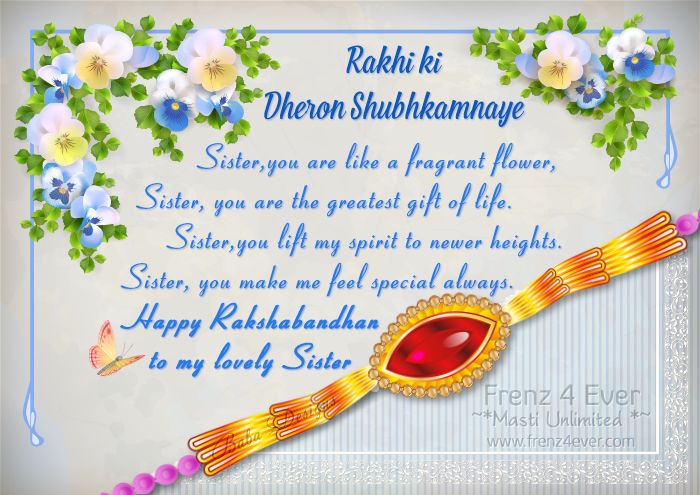 Rakhi ki
Dheron Shubhkamnaye
Sister,you are like a fragrant flower,
Sister, you are the greatest gift of life.
Sister,you lift my spirit to newer heights.
Sister, you make me feel special always.
Happy Rakshabandhan
to my lovely Sister
Frenz 4 Ever
~*Masti Unlimited *~
www.frenz4ever.com
Baba Designs